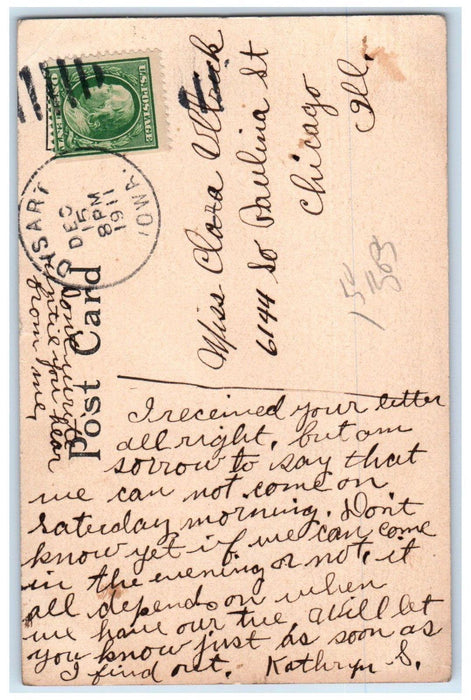 U.S. POSTAGE
ONE CENT
DYSART
IOWA.
DEC
15
8PM
1911
Post Card
Miss Clara
6144 So Paulina St
Chicago
Ill.
150
303
I received your letter
all right, but am
sorrow to say that
we can not come on
saterday morning. Don't
know yet if we can come
in the evening or not, it
all depends on when
we have our tre. Will let
you know just as soon as
I find out. Kathryn S.
Dont write
untie you hear
from me,